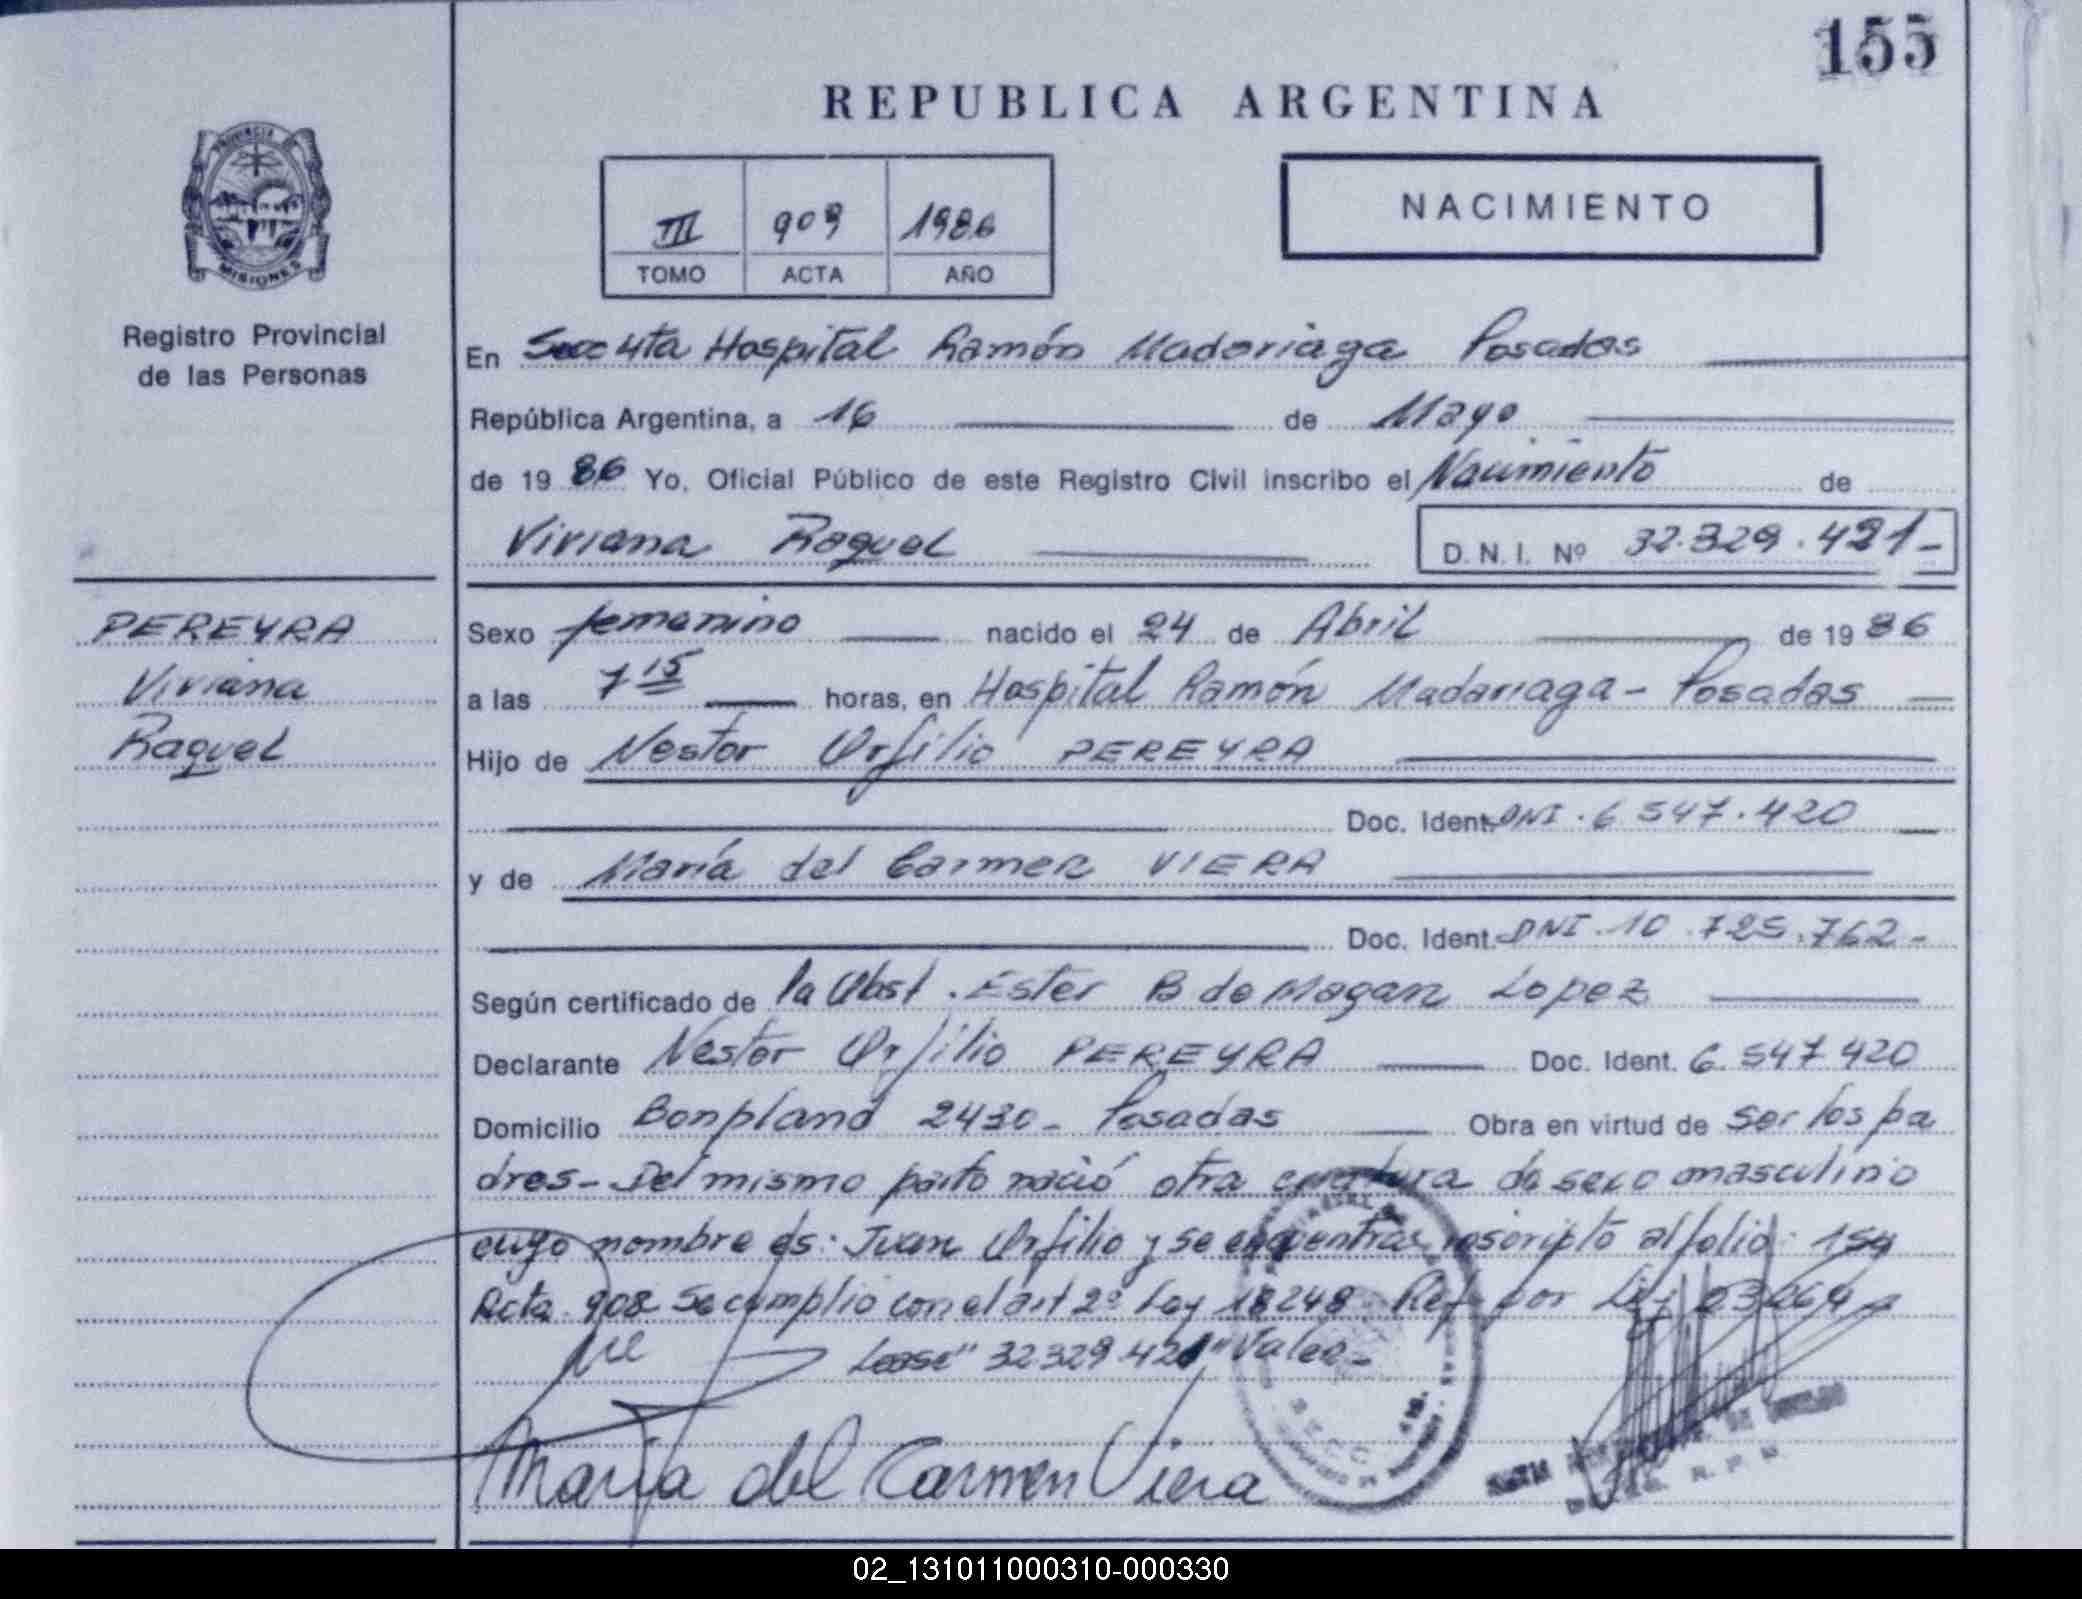 155
REPUBLICA ARGENTINA
PROVINCIA DE
MISIONES
Registro Provincial
de las Personas
III 909 1986
TOMO ACTA AÑO
NACIMIENTO
En Secc 4ta Hospital Ramón Madariaga Posadas
República Argentina, a 16 de Mayo
de 19 86 Yo, Oficial Público de este Registro Civil inscribo el Nacimiento de
Viviana Raquel D. N. I. Nº 32.329.421-
PEREYRA
Viviana
Raquel
Sexo femenino nacido el 24 de Abril de 19 86
a las 7 15 horas, en Hospital Ramón Madariaga - Posadas
Hijo de Nestor Orfilio PEREYRA
Doc. Ident. DNI. 6 547.420
y de María del Carmen VIERA
Doc. Ident. DNI. 10.725.762-
Según certificado de la Obst. Ester B de Magan Lopez
Declarante Nestor Orfilio PEREYRA Doc. Ident. 6.547 420
Domicilio Bonpland 2430- Posadas Obra en virtud de ser los pa
dres- Del mismo parto nació otra criatura de sexo masculino
cuyo nombre es: Juan Orfilio y se encuentra inscripto al folio: 154
Acta 908 Se cumplio con el art 2º Ley 18248. Ref por Ley 23264
Lease" 32329.421" Vale-
María del Carmen Viera
02_131011000310-000330